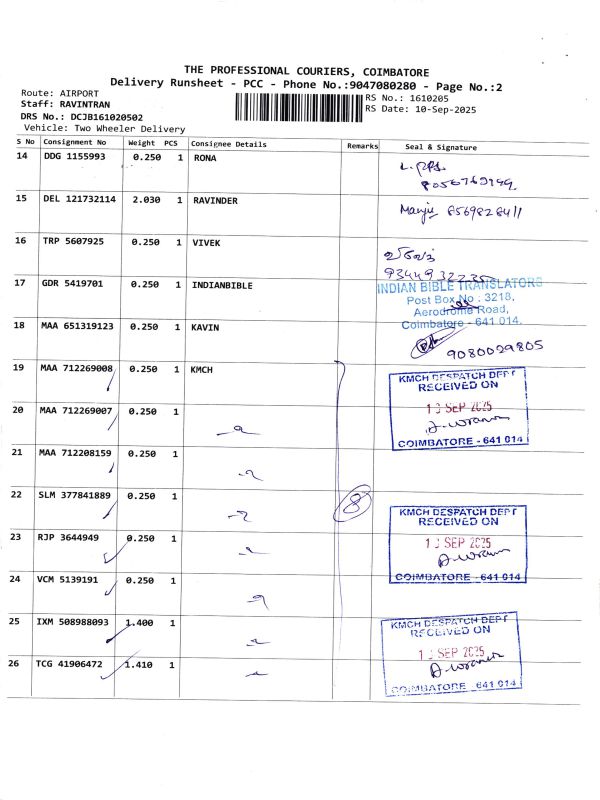 THE PROFESSIONAL COURIERS, COIMBATORE
Delivery Runsheet - PCC - Phone No.:9047080280 - Page No.:2
Route: AIRPORT
Staff: RAVINTRAN
DRS No.: DCJB161020502
Vehicle: Two Wheeler Delivery
RS No.: 1610205
RS Date: 10-Sep-2025
S No Consignment No Weight PCS Consignee Details Remarks Seal & Signature
14 DDG 1155993 0.250 1 RONA
15 DEL 121732114 2.030 1 RAVINDER Manju 8569828411
16 TRP 5607925 0.250 1 VIVEK
17 GDR 5419701 0.250 1 INDIANBIBLE
INDIAN BIBLE TRANSLATORS
Post Box No : 3218,
Aerodrome Road,
Coimbatore - 641 014.
18 MAA 651319123 0.250 1 KAVIN 9080029805
19 MAA 712269008 0.250 1 KMCH
KMCH DESPATCH DEPT
RECEIVED ON
SEP 2025
COIMBATORE - 641 014
20 MAA 712269007 0.250 1
21 MAA 712208159 0.250 1
22 SLM 377841889 0.250 1 8
KMCH DESPATCH DEPT
RECEIVED ON
23 RJP 3644949 0.250 1
SEP 2025
24 VCM 5139191 0.250 1
COIMBATORE - 641 014
25 IXM 508988093 1.400 1
KMCH DESPATCH DEPT
RECEIVED ON
SEP 2025
26 TCG 41906472 1.410 1
COIMBATORE - 641 014